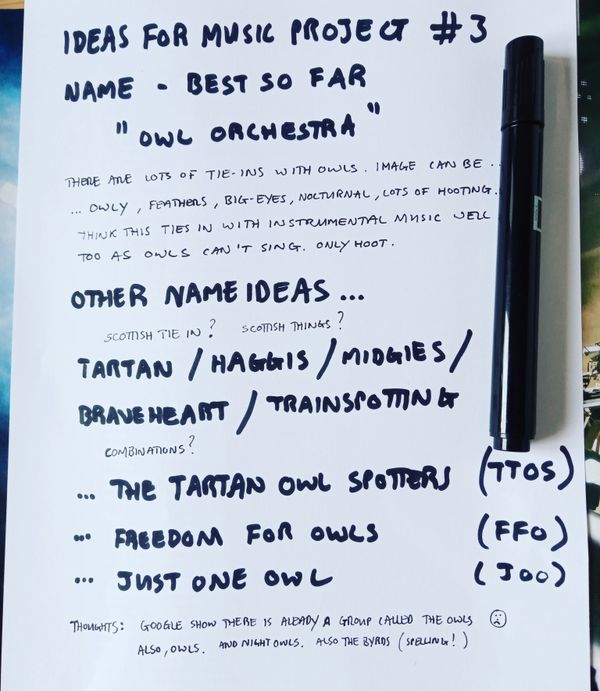 IDEAS FOR MUSIC PROJECT #3
NAME - BEST SO FAR
"OWL ORCHESTRA"
THERE ARE LOTS OF TIE-INS WITH OWLS. IMAGE CAN BE ..
... OWLY, FEATHERS, BIG-EYES, NOCTURNAL, LOTS OF HOOTING.
THINK THIS TIES IN WITH INSTRUMENTAL MUSIC WELL
TOO AS OWLS CAN'T SING. ONLY HOOT.
OTHER NAME IDEAS ...
SCOTTISH TIE IN? SCOTTISH THINGS?
TARTAN / HAGGIS / MIDGIES /
BRAVEHEART / TRAINSPOTTING
COMBINATIONS?
... THE TARTAN OWL SPOTTERS (TTOS)
... FREEDOM FOR OWLS (FFO)
... JUST ONE OWL (JOO)
THOUGHTS: GOOGLE SHOW THERE IS ALEADY A GROUP CALLED THE OWLS ☹
ALSO, OWLS. AND NIGHT OWLS. ALSO THE BYRDS (SPELLING!)